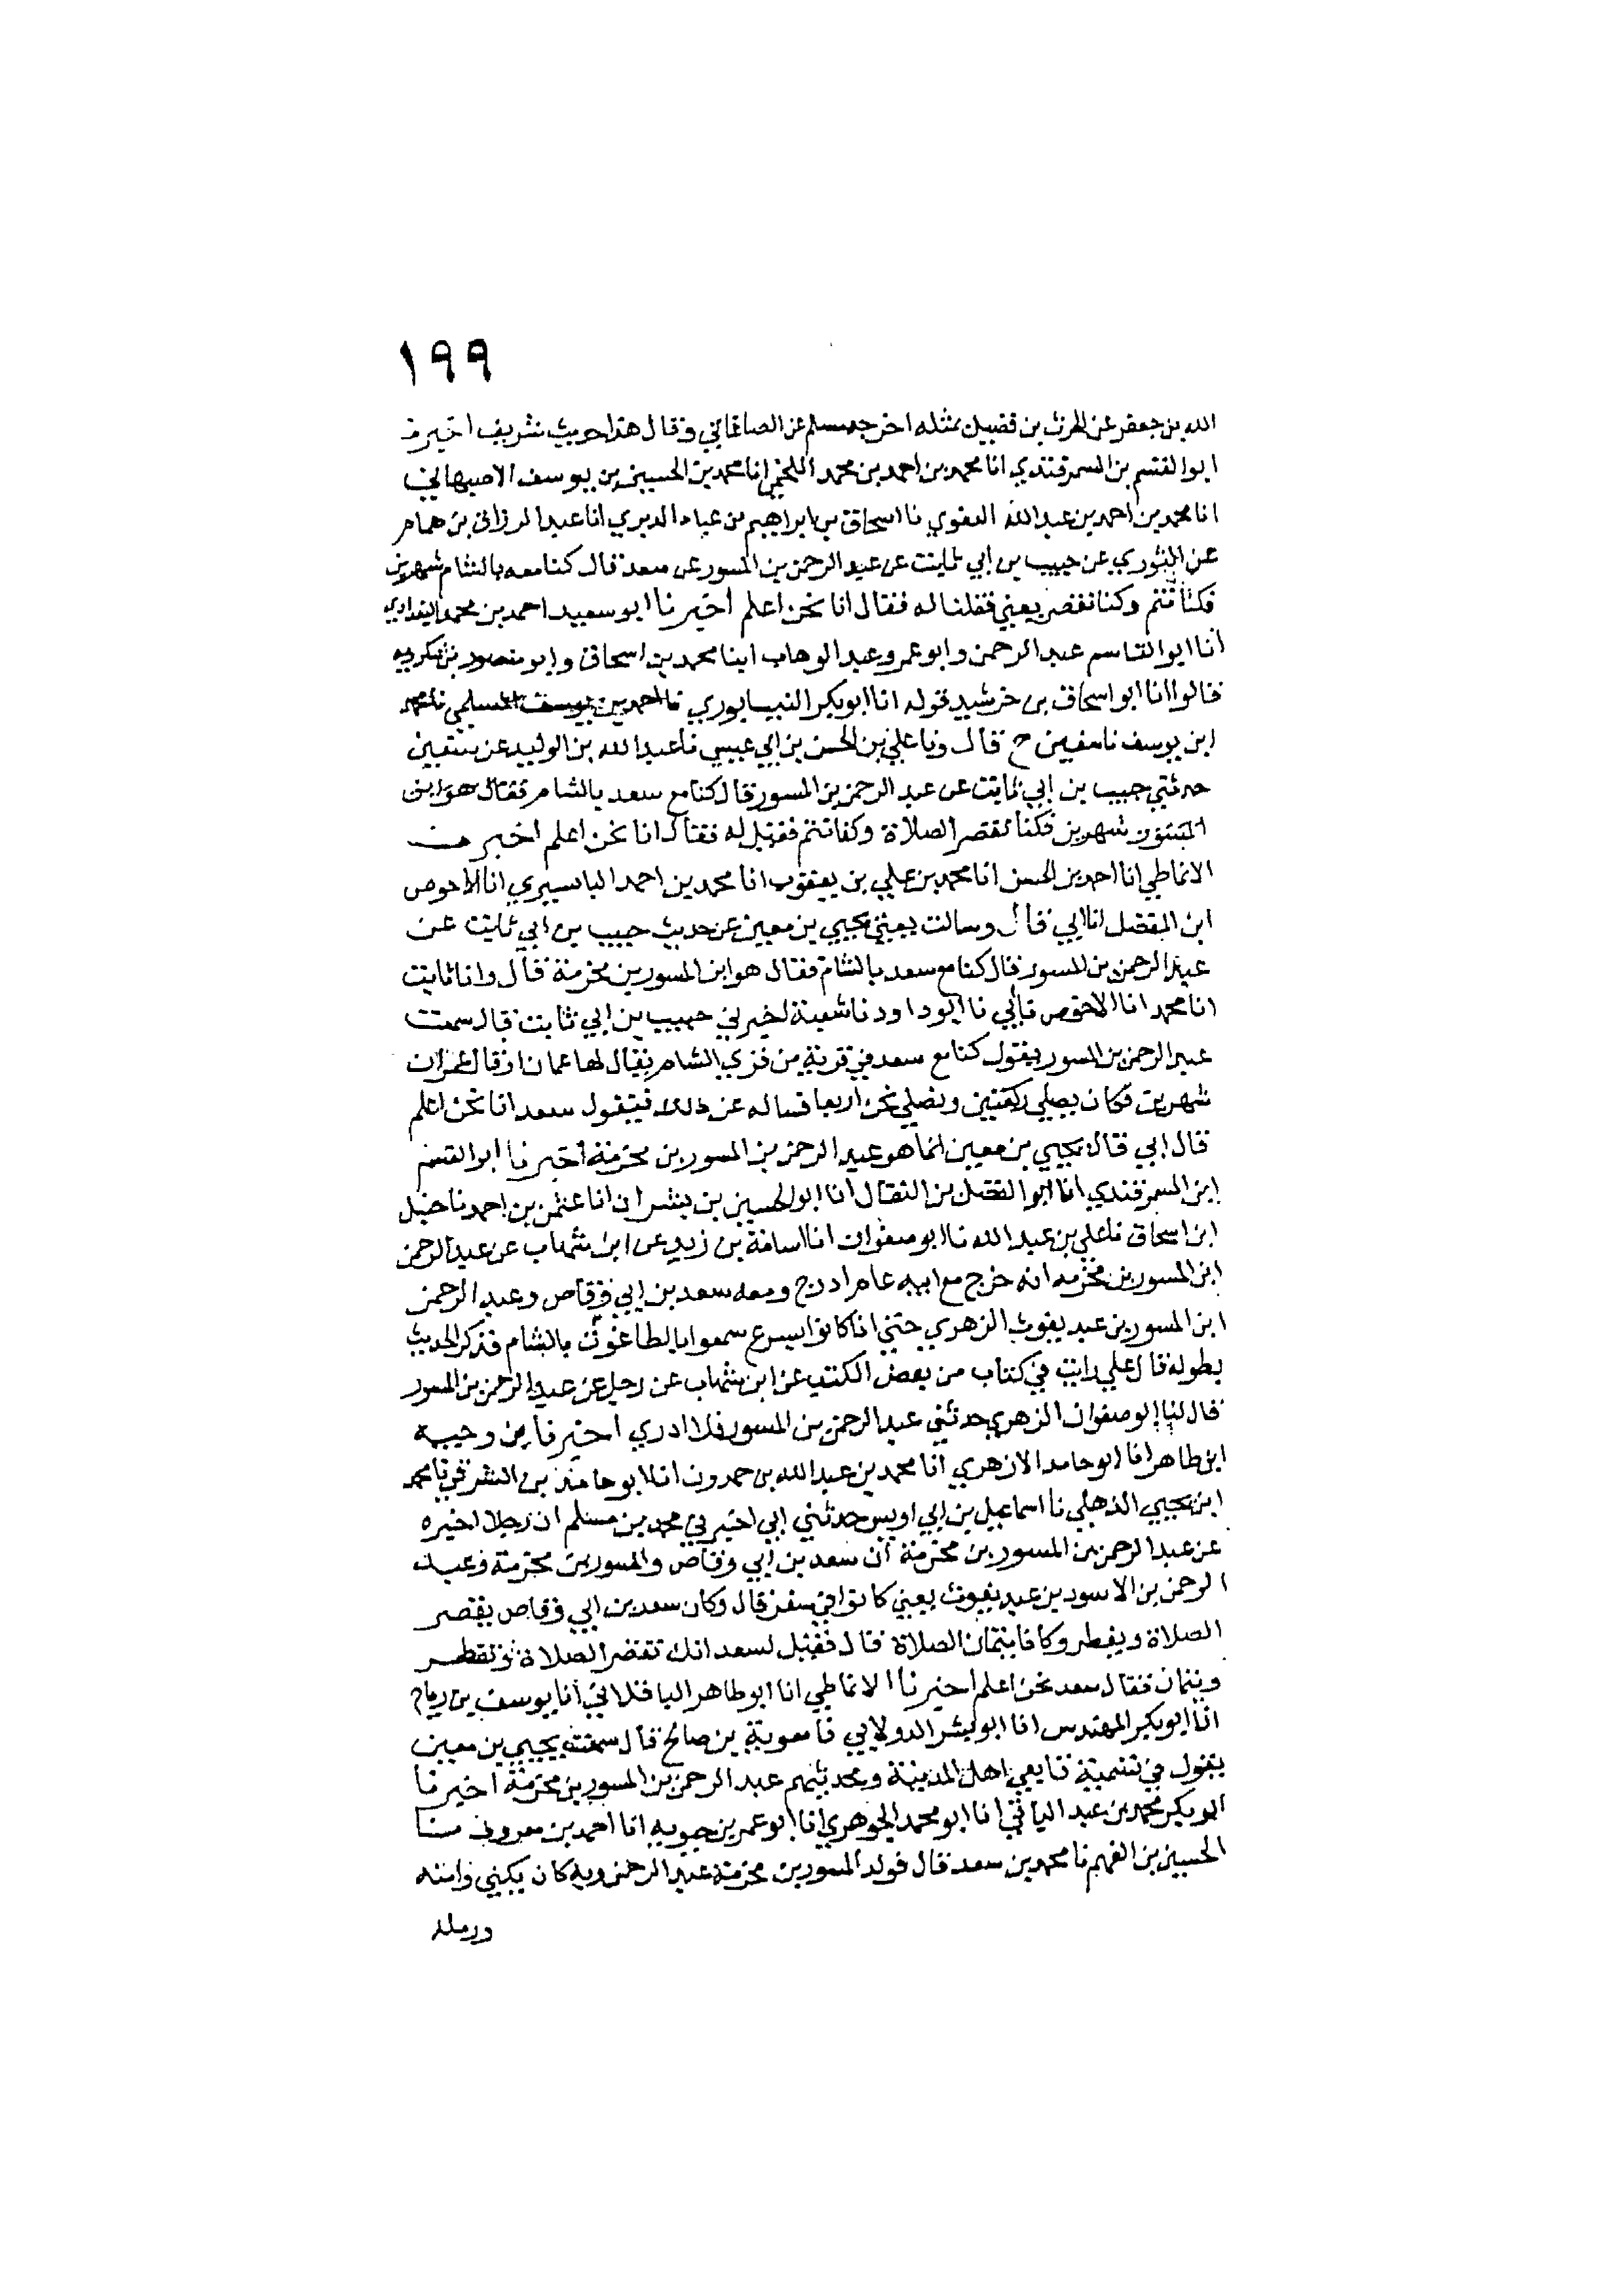 ١٩٩
الله بن جعفر عن الحرث بن فضيل بمثله اخرجه مسلم عن الصاغاني وقال هذا حديث شريف اخبرنا
ابو القسم بن السمرقندي انا محمد بن احمد بن محمد اللخمي انا محمد بن الحسين بن يوسف الاصبهاني
انا محمد بن احمد بن عبد الله النقوي نا اسحاق بن ابراهيم بن عباد الدبري انا عبد الرزاق بن همام
عن الثوري عن حبيب بن ابي ثابت عن عبد الرحمن بن المسور عن سعد قال كنا معه بالشام شهرين
فكنا نتم وكنا نقصر يعني فقلنا له فقال انا نحن اعلم اخبرنا ابو سعيد احمد بن محمد البغدادي
انا ابو القاسم عبد الرحمن وابو عمرو عبد الوهاب ابنا محمد بن اسحاق وابو منصور بن شكرويه
قالوا انا ابو اسحاق بن خرشيد قوله انا ابو بكر النيسابوري نا احمد بن يوسف السلمي نا محمد
ابن يوسف نا سفين ح قال ونا علي بن الحسن بن ابي عيسي نا عبد الله بن الوليد عن سفين
حدثني حبيب بن ابي ثابت عن عبد الرحمن بن المسور قال كنا مع سعد بالشام فقال هو ابن
المسور شهرين فكنا نقصر الصلاة وكنا نتم فقيل له فقال انا نحن اعلم اخبرنا
الانماطي انا احمد بن الحسن انا محمد بن علي بن يعقوب انا محمد بن احمد البابسيري انا الاحوص
ابن المفضل انا ابي قال وسالت يعني يحيي بن معين عن حديث حبيب بن ابي ثابت عن
عبد الرحمن بن المسور قال كنا مع سعد بالشام فقال هو ابن المسور بن مخرمة قال وانا ثابت
انا محمد انا الاحوص نا ابي نا ابو داود نا شعبة اخبرني حبيب بن ابي ثابت قال سمعت
عبد الرحمن بن المسور يقول كنا مع سعد في قرية من قري الشام يقال لها عمان او قال عمران
شهرين فكان يصلي ركعتين ونصلي نحن اربعا فساله عن ذلك فيقول سعد انا نحن اعلم
قال ابي قال يحيي بن معين انما هو عبد الرحمن بن المسور بن مخرمة اخبرنا ابو القسم
ابن السمرقندي انا ابو الفضل بن البقال انا ابو الحسين بن بشران انا عثمن بن احمد نا حنبل
ابن اسحاق نا علي بن عبد الله نا ابو صفوان انا اسامة بن زيد عن ابن شهاب عن عبد الرحمن
ابن المسور بن مخرمه انه خرج مع ابيه عام ادرح ومعه سعد بن ابي وقاص وعبد الرحمن
ابن المسور بن عبد يغوث الزهري حتي اذا كانوا بسرع سمعوا بالطاعون بالشام فذكر الحديث
بطوله قال علي رايت في كتاب من بعض الكتب عن ابن شهاب عن رجل عن عبد الرحمن بن المسور
قال لنا ابو صفوان الزهري حدثني عبد الرحمن بن المسور فلا ادري اخبرنا بن وجيه
ابن طاهر انا ابو حامد الازهري انا محمد بن عبد الله بن حمدون انا ابو حامد بن الشرقي نا محمد
ابن يحيي الذهلي نا اسماعيل بن ابي اويس حدثني ابي اخبرني محمد بن مسلم ان رجلا اخبره
عن عبد الرحمن بن المسور بن مخرمة ان سعد بن ابي وقاص والمسور بن مخرمة وعبد
الرحمن بن الاسود بن عبد يغوث يعني كانوا في سفر قال وكان سعد بن ابي وقاص يقصر
الصلاة ويفطر وكانا يتمان الصلاة قال فقيل لسعد انك تقصر الصلاة وتفطر
ويتمان فقال سعد نحن اعلم اخبرنا الانماطي انا ابو طاهر الباقلاني انا يوسف بن رباح
انا ابو بكر المهندس انا ابو بشر الدولابي نا معوية بن صالح قال سمعت يحيي بن معين
يقول في تسمية تابعي اهل المدينة ومحدثيهم عبد الرحمن بن المسور بن مخرمة اخبرنا
ابو بكر محمد بن عبد الباقي انا ابو محمد الجوهري انا ابو عمر بن حيويه انا احمد بن معروف نا
الحسين بن الفهم نا محمد بن سعد قال فولد المسور بن مخرمة عبد الرحمن وبه كان يكني وامته
ورملة